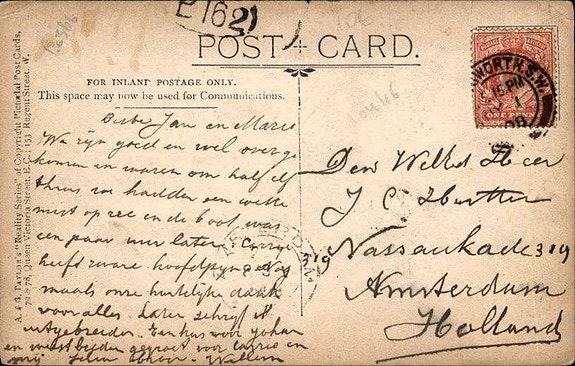 E162)
POST CARD.
FOR INLAND POSTAGE ONLY.
This space may now be used for Communications.
A. & G. TAYLOR'S "Reality Series" of Copyright Pictorial Post Cards,
70 & 78, Queen Victoria Street, E.C.; 153 Regent Street, W.
WORTH. S.W.
15 PM
08
ONE PENNY
Beste Jan en Marie
We zijn goed en wel overge
komen en waren om half elf
thuis we hadden een
mist op zee en de boot was
een paar uur later. Corrie
heeft zware hoofdpijn Nog
maals onze hartelijke dank
voor alles. Later schrijf ik
uitgebreider. Een kus voor Johan
en weest beiden gegroet voor Corrie en
mij Willem
Den Welhd Heer
J C
Nassaukade 319
319
Amsterdam
Holland